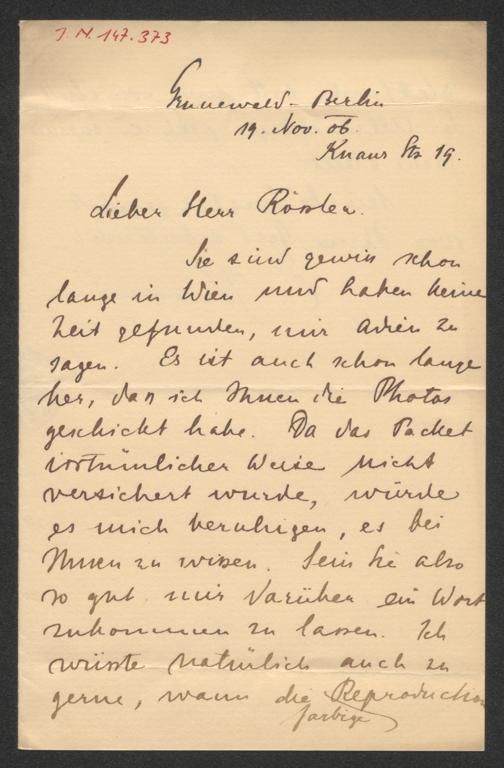 J. N. 147.373
Grunewald-Berlin
19. Nov. 06
Knaus Str 19.
Lieber Herr Rössler.
Sie sind gewiss schon
lange in Wien und haben keine
Zeit gefunden, mir Adieu zu
sagen. Es ist auch schon lange
her, dass ich Ihnen die Photos
geschickt habe. Da das Packet
irrtümlicher Weise nicht
versichert wurde, würde
es mich beruhigen, es bei
Ihnen zu wissen. Sein Sie also
so gut mir darüber ein Wort
zukommen zu lassen. Ich
wüsste natürlich auch zu
gerne, wann die Reproduction
farbige